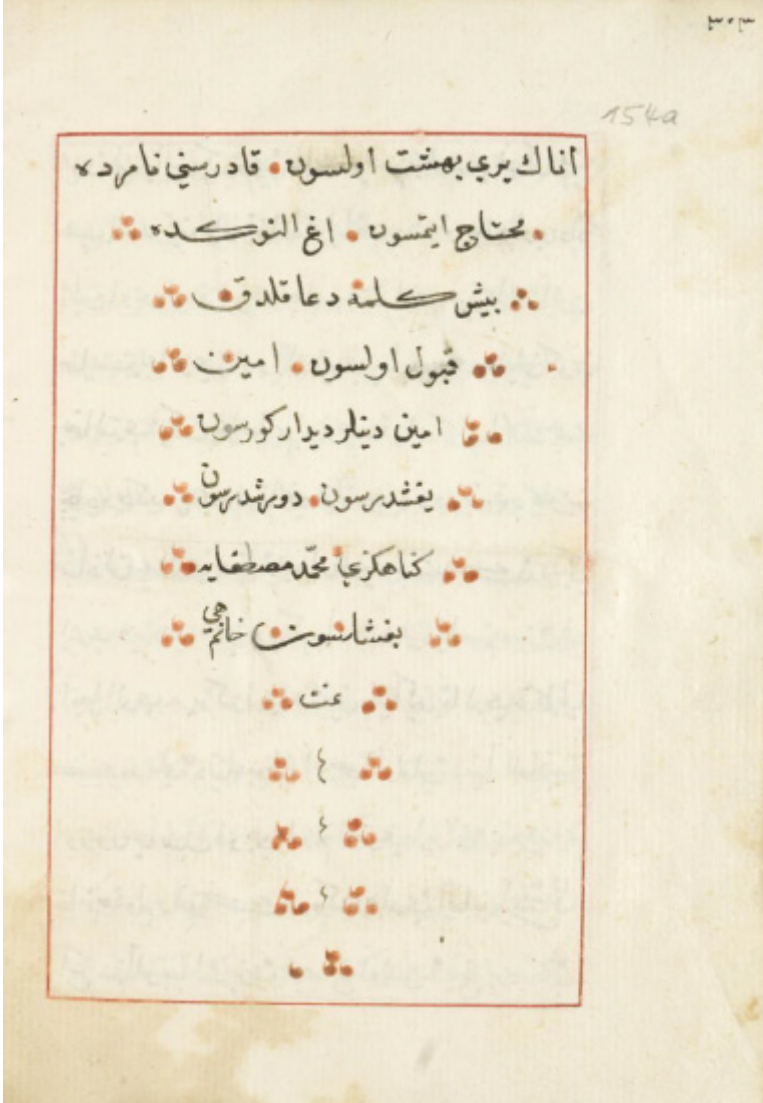 ٣٠٣
154a
اناك يري بهشت اولسون قادر سني نامرده
محتاج ايتمسون اغ النوكده
بيش كلمه دعا قلدق
قبول اولسون امين
امين دينلر ديدار كورسون
يغشدرسون دورشدرسون
كناهكزي محمّد مصطفايه
بغشلسون خانم هي
تمت
٤
٤
٤